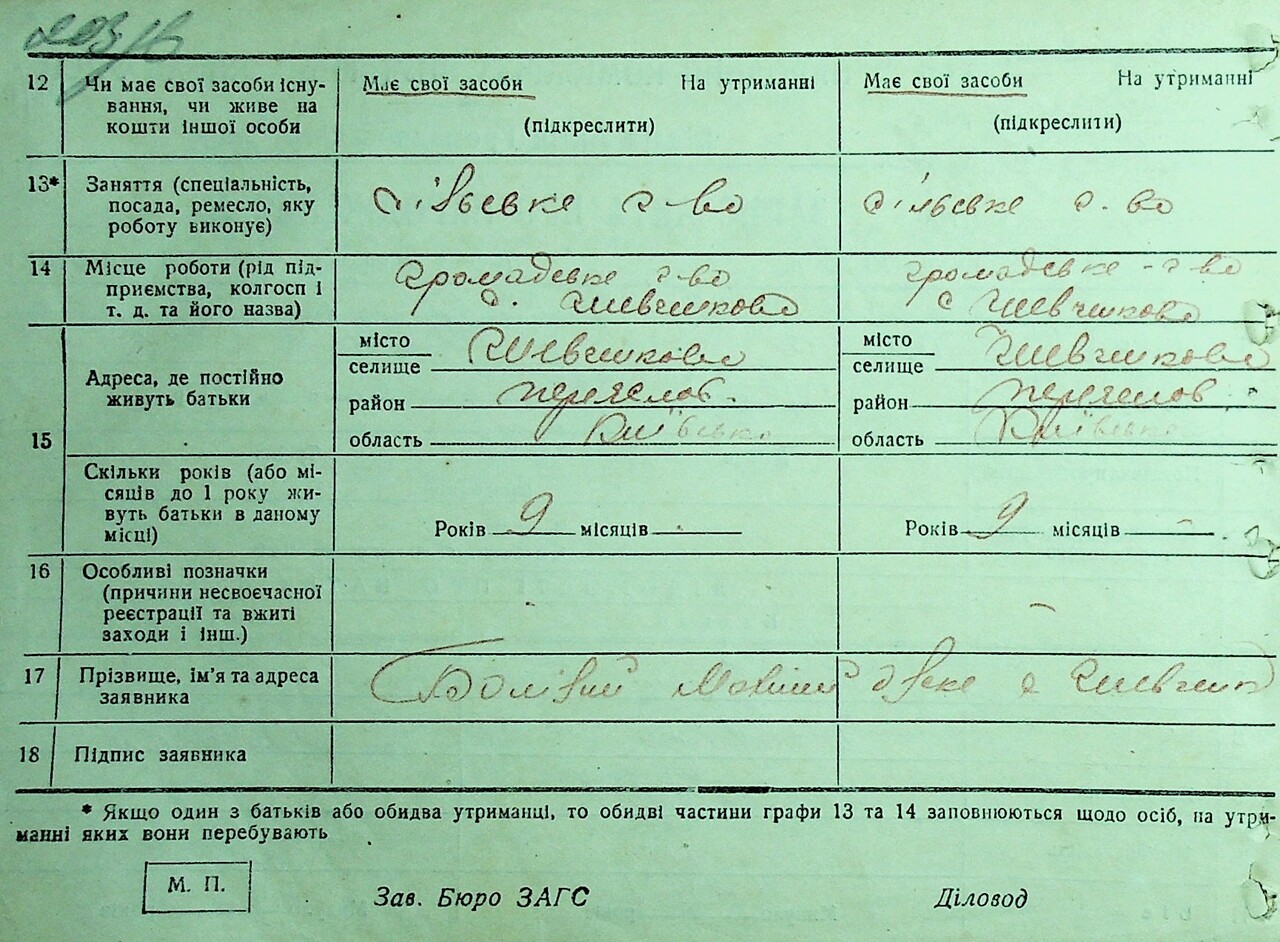 203/16
12 Чи має свої засоби існу-
вання, чи живе на
кошти іншої особи
Має свої засоби На утриманні
(підкреслити)
Має свої засоби На утриманні
(підкреслити)
13* Заняття (спеціальність,
посада, ремесло, яку
роботу виконує)
сільське г-во
сільське г-во
14 Місце роботи (рід під-
приємства, колгосп і
т. д. та його назва)
Громадське г-во
с.
громадське г-во
с
15 Адреса, де постійно
живуть батьки
місто
селище
район
область Київська
місто
селище
район
область Київська
Скільки років (або мі-
сяців до 1 року жи-
вуть батьки в даному
місці)
Років 9 місяців -
Років 9 місяців -
16 Особливі позначки
(причини несвоєчасної
реєстрації та вжиті
заходи і інш.)
-
-
17 Прізвище, ім'я та адреса
заявника
18 Підпис заявника
* Якщо один з батьків або обидва утриманці, то обидві частини графи 13 та 14 заповнюються щодо осіб, на утри-
манні яких вони перебувають
М. П.
Зав. Бюро ЗАГС
Діловод